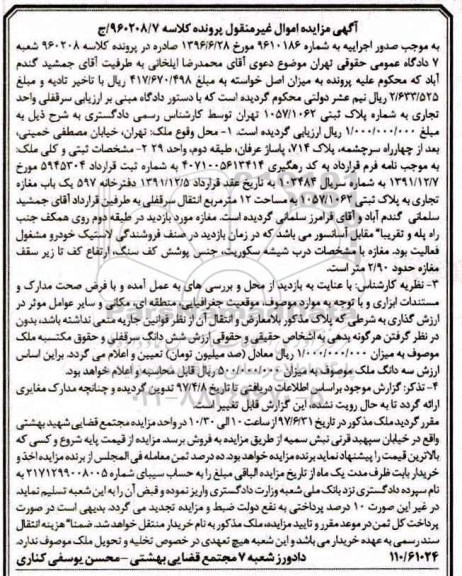 آگهی مزایده اموال غیرمنقول پرونده کلاسه ۹۶۰۲۰۸/۷/ج
به موجب صدور اجراییه به شماره ۹۶۱۰۱۸۶ مورخ ۱۳۹۶/۶/۲۸ صادره در پرونده کلاسه ۹۶۰۲۰۸ شعبه
۷ دادگاه عمومی حقوقی تهران موضوع دعوی آقای محمدرضا ایلخانی به طرفیت آقای جمشید گندم
آباد که محکوم علیه پرونده به میزان اصل خواسته به مبلغ ۴۱۷/۶۷۰/۴۹۸ ریال با تاخیر تادیه و مبلغ
۲/۶۳۳/۵۲۵ ریال نیم عشر دولتی محکوم گردیده است که با دستور دادگاه مبنی بر ارزیابی سرقفلی واحد
تجاری به شماره پلاک ثبتی ۱۰۵۷/۱۰۶۲ تهران توسط کارشناس رسمی دادگستری به شرح ذیل به
مبلغ ۱/۰۰۰/۰۰۰/۰۰۰ ریال ارزیابی گردیده است. ۱- محل وقوع ملک: تهران، خیابان مصطفی خمینی،
بعد از چهارراه سرچشمه، پلاک ۷۱۴، پاساژ عرفان، طبقه دوم، واحد ۲۹ ۲- مشخصات ثبتی و کلی ملک:
به موجب نامه فرم قرارداد به کد رهگیری ۴۰۷۱۰۰۵۶۱۳۴۱۴ به شماره ثبت قرارداد ۵۹۴۵۳۰۴ مورخ
۱۳۹۱/۱۲/۷ به شماره سریال ۱۰۳۴۸۳ به تاریخ عقد قرارداد ۱۳۹۱/۱۲/۵ دفترخانه ۵۹۷ یک باب مغازه
تجاری به پلاک ثبتی ۱۰۵۷/۱۰۶۲ به مساحت ۱۲ مترمربع انتقال سرقفلی به طرفین قرارداد آقای جمشید
سلمانی گندم آباد و آقای فرامرز سلمانی گردیده است. مغازه مورد بازدید در طبقه دوم روی همکف جنب
راه پله و تقریبا" مقابل آسانسور می باشد که در زمان بازدید در صنف فروشندگی لاستیک خودرو مشغول
فعالیت بود. مغازه با مشخصات درب شیشه سکوریت، جنس پوشش کف سنگ، ارتفاع کف تا زیر سقف
مغازه حدود ۲/۹۰ متر است.
۳- نظریه کارشناس: با عنایت به بازدید از محل و بررسی های به عمل آمده و با فرض صحت مدارک و
مستندات ابرازی و با توجه به موارد موصوف، موقعیت جغرافیایی، منطقه ای، مکانی و سایر عوامل موثر در
ارزش گذاری به شرطی که پلاک مذکور بلامعارض و انتقال آن از نظر قوانین جاریه منعی نداشته باشد، بدون
در نظر گرفتن هرگونه بدهی به اشخاص حقیقی و حقوقی ارزش شش دانگ سرقفلی و حقوق مکتسبه ملک
موصوف به میزان ۱/۰۰۰/۰۰۰/۰۰۰ ریال معادل (صد میلیون تومان) تعیین و اعلام می گردد. براین اساس
ارزش سه دانگ ملک موصوف به میزان ۵۰۰/۰۰۰/۰۰۰ ریال قابل محاسبه و اعلام خواهد بود.
۴- تذکر: گزارش موجود براساس اطلاعات دریافتی تا تاریخ ۹۷/۴/۸ تدوین گردیده و چنانچه مدارک مغایری
ارائه گردد تا به حال رویت نشده، این گزارش قابل تغییر است.
مقرر گردید ملک مذکور در تاریخ ۹۷/۶/۳۱ از ساعت ۱۰ الی ۱۰/۳۰ در واحد مزایده مجتمع قضایی شهید بهشتی
واقع در خیابان سپهبد قرنی نبش سمیه از طریق مزایده به فروش برسد. مزایده از قیمت پایه شروع و کسی که
بالاترین قیمت را پیشنهاد نماید برنده مزایده خواهد بود. ده درصد ثمن معامله فی المجلس از برنده مزایده اخذ و
خریدار بابت ظرف مدت یک ماه از تاریخ مزایده الباقی مبلغ را به حساب سیبای شماره ۲۱۷۱۲۹۹۰۰۸۰۰۵ به
نام سپرده دادگستری نزد بانک ملی شعبه وزارت دادگستری واریز نموده و قبض آن را به این شعبه تسلیم نماید.
در غیر این صورت ۱۰ درصد پرداختی به نفع دولت ضبط و مزایده تجدید می گردد. بدیهی است در صورت
پرداخت کل ثمن در موعد مقرر و تایید مزایده، ملک مذکور به نام خریدار منتقل خواهد شد. ضمنا" هزینه انتقال
سند رسمی به عهده خریدار می باشد و این شعبه هیچ تعهدی در خصوص تخلیه و تحویل ملک موصوف ندارد.
۱۱۰/۶۱۰۲۴ دادورز شعبه ۷ مجتمع قضایی بهشتی - محسن یوسفی کناری